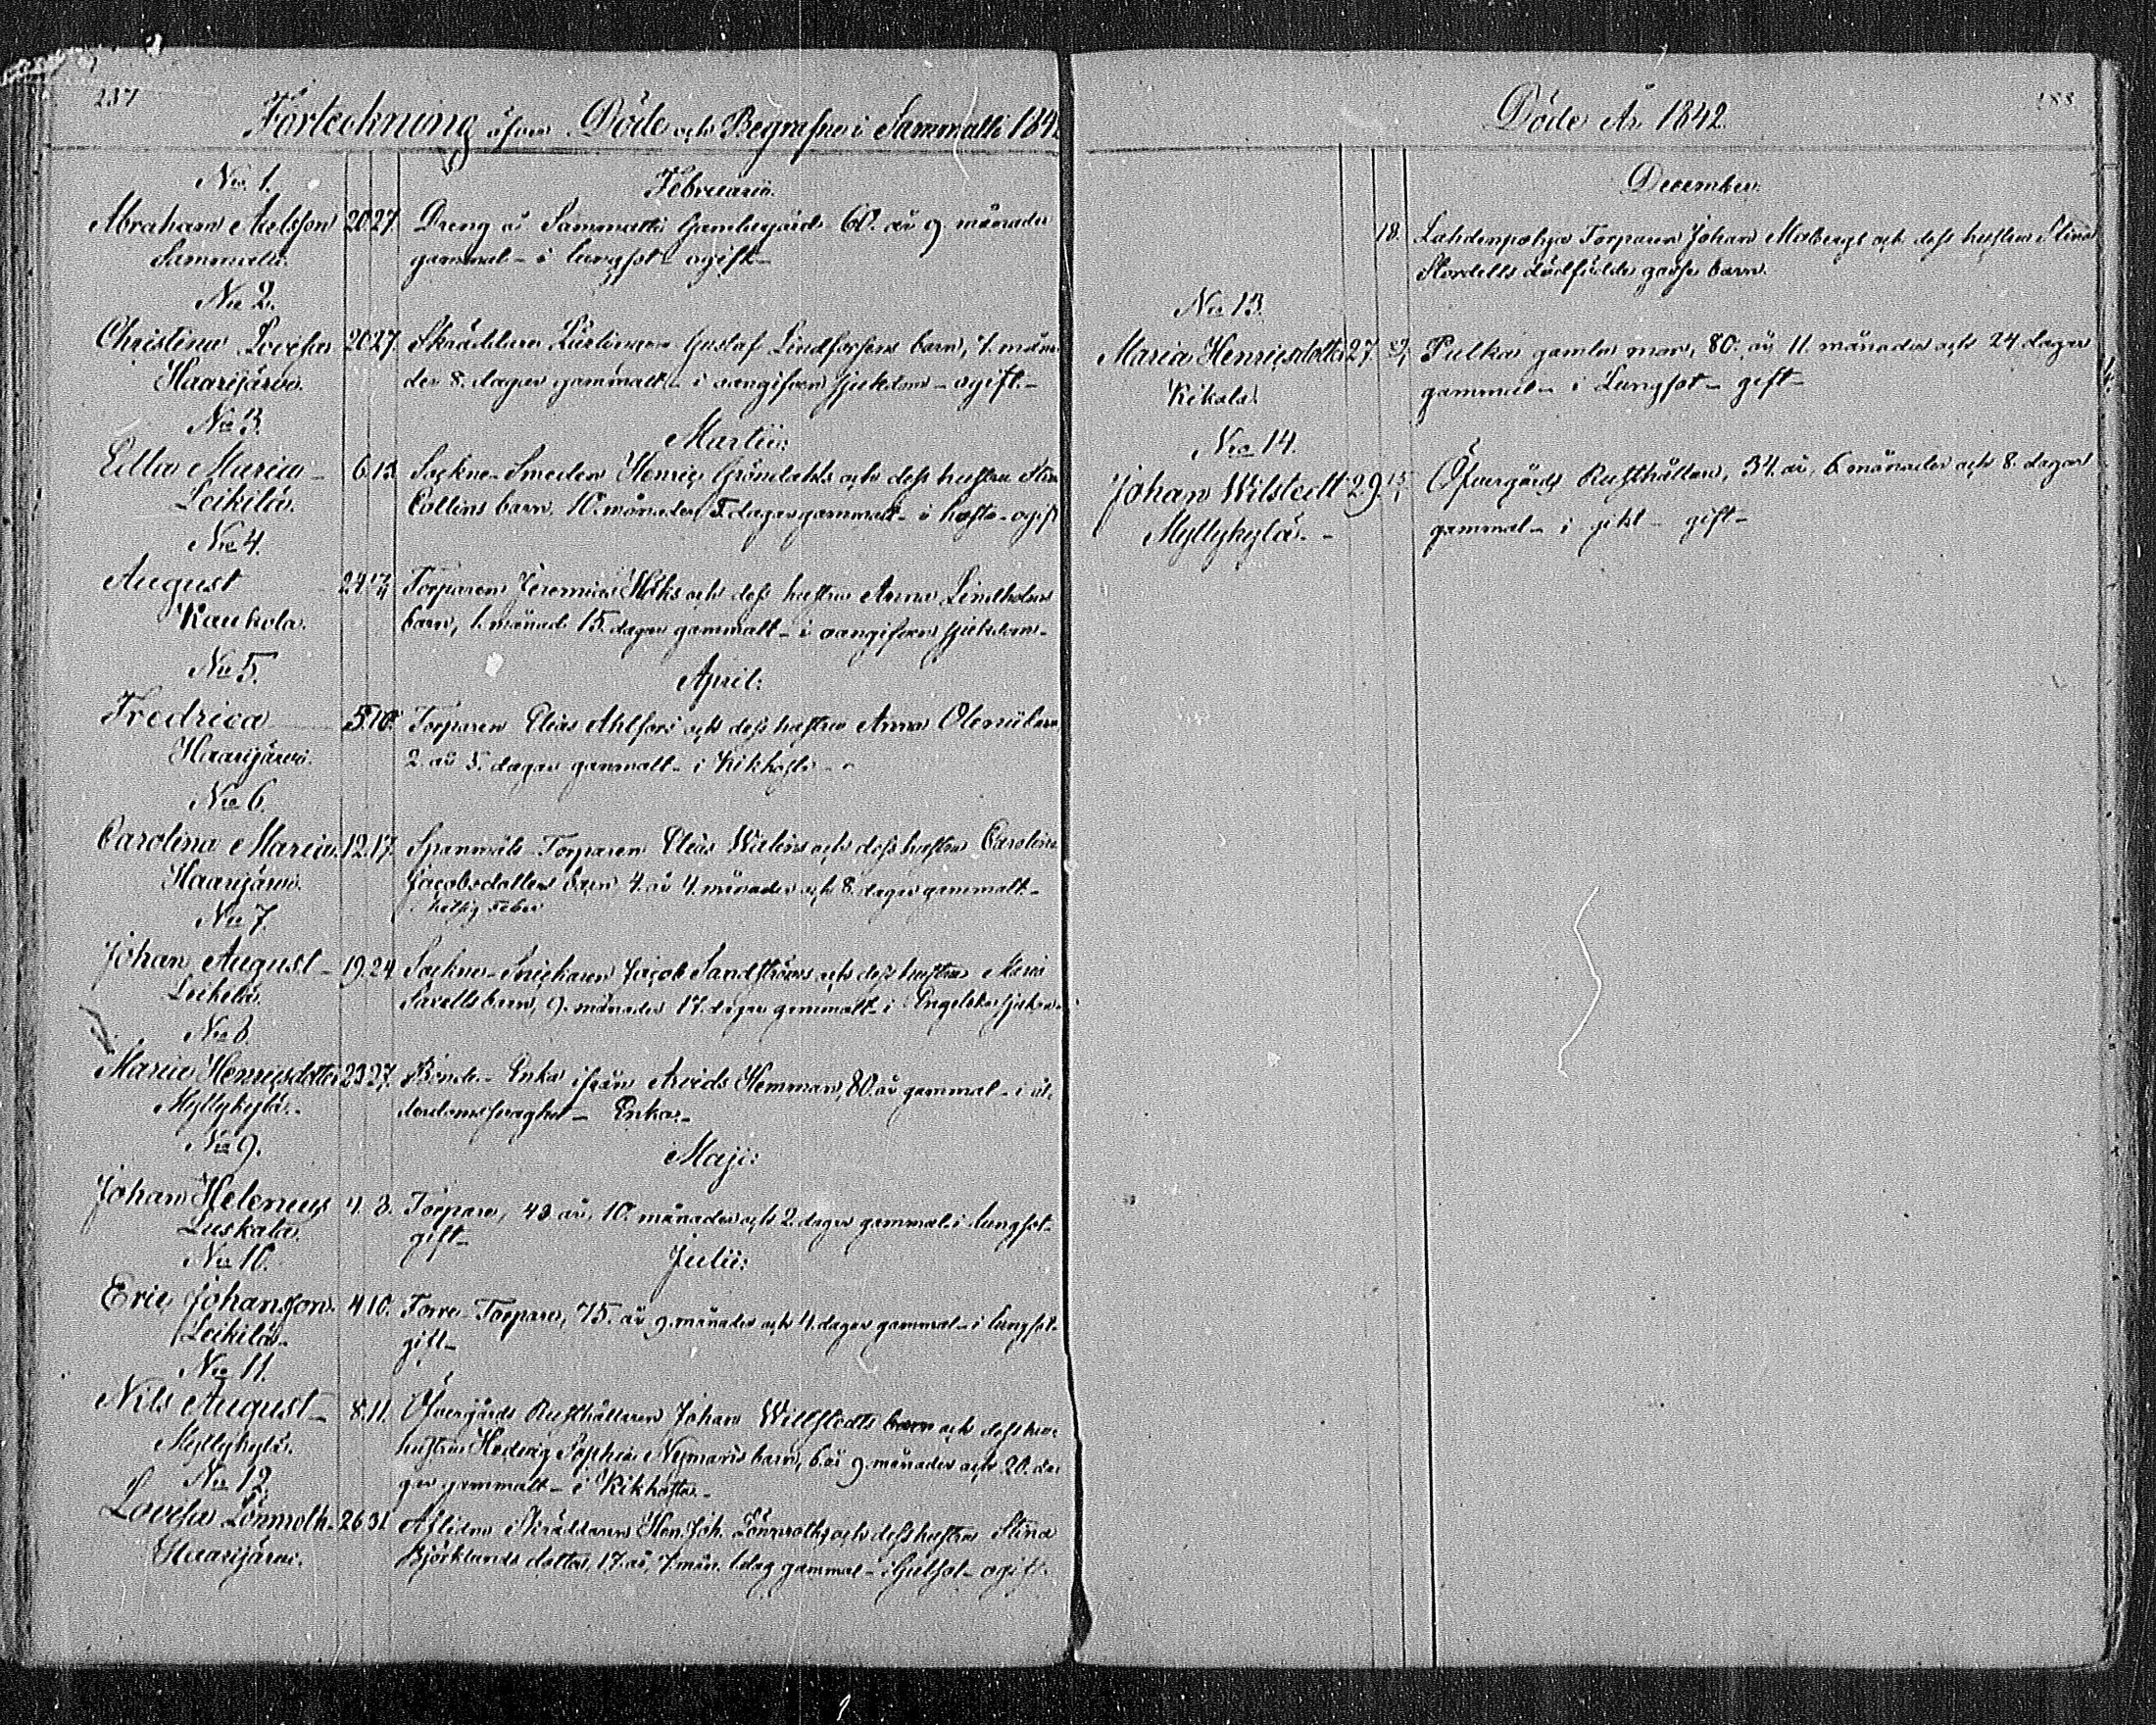 237
Förteckning öfver Döde och Begrafne i Sammatti 184
No 1.
Februarii.
Abraham Axelsson 20. 27. Dreng å Sammatti Gambelgård 60. år 9. månader
Sammatti. gammal - i lungsot - ogift -
No 2.
Christina Lovisa 20. 27. Skräddare Gustaf Lindforsens barn, 7. måna
Haarijärvi. der 8. dagar gammalt - i oangifven sjukdom - ogift -
No 3.
Martii:
Edla Maria - 6. 13. Sockne-Smeden Henric Gröndahls och dess hustru Stina
Leikilä. Collins barn, 10. månader 5. dagar gammalt - i hosta - ogift
No 4.
August 24. Torparen Jeremias och dess hustru Anna Lindholms
Kaukola. barn, 1. månad 15. dagar gammalt - i oangifven sjukdom -
No 5.
April:
Fredrica 5. 10. Torparen Elias Ahlfors och dess hustru Anna barn,
Haarijärvi. 2. år 5. dagar gammalt - i Kikhosta -
No 6.
Carolina Maria 12. 17. Spanmåls Torparen Elias och dess hustru Carolina
Haarijärvi. Jacobsdotters barn 4. år 4. månader och 8. dagar gammalt -
hetsig feber
No 7.
Johan August - 19. 24. Sockne-Snickaren Jacob Sandströms och dess hustru Maria
Leikilä. barn, 9. månader 17. dagar gammalt - i Engelska sjukan -
No 8.
Maria Henricsdotter 23. 27. Bonde-Enka ifrån Arvids Hemman, 80. år gammal - i ål-
Myllykylä. derdomssvaghet - Enka -
No 9.
Maji:
Johan Helenius 4. 8. Torpare, 43 år, 10. månader och 2. dagar gammal i lungsot -
Luskala. gift -
No 10.
Julii:
Eric Johansson 4. 10. Torpare, 75. år 9. månader och 4. dagar gammal - i lungsot -
Leikilä. gift -
No 11.
Nils August - 8. 11. Öfvergårds Rusthållaren Johan Willstedts barn och dess
Myllykylä. hustru Hedvig Sophia Nymans barn, 6. år 9. månader och 20. da-
gar gammalt - i Kikhosta -
No 12.
Lovisa Lönnroth. 26. 31. Aflidne Skräddaren Hen. Joh. Lönnroths och dess hustru Stina
Haarijärvi. Björklunds dotter, 17. år, 7. mån. 1. dag gammal - i - ogift -
Döde År 1842.
188
December.
18. Lahdenpohja Torparen Johan Mobergs och dess hustru Stina
Nordells dödfödde gosse barn.
No 13.
Maria Henricsdotter 27. Pulka gamla mor, 80. år 11. månader och 24. dagar
Kikala. gammal - i Lungsot - gift -
No 14.
Johan Wilstedt 29. Öfvergårds Rusthållare, 34. år 6. månader och 8. dagar
Myllykylä. gammal - i gikt - gift -